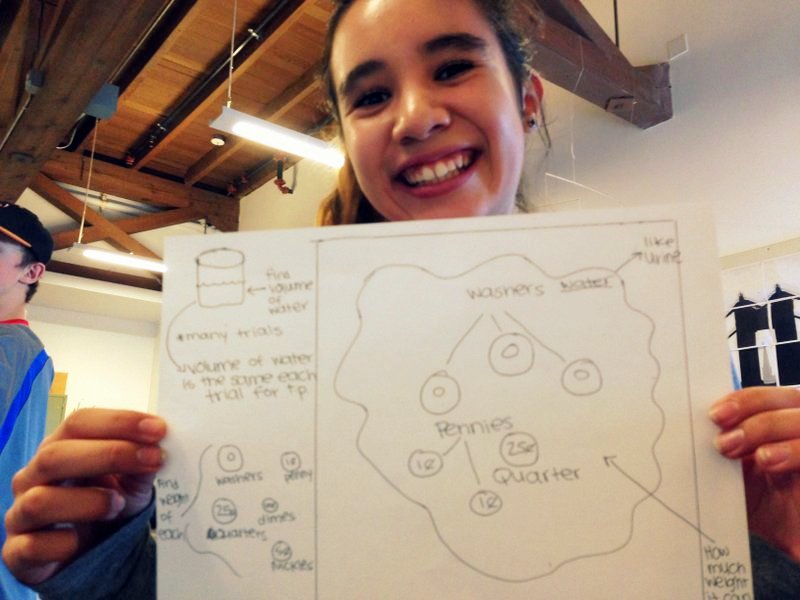 find
volume
of
water
*many trials
volume of water
is the same each
trial for tp
Find
weight
of
each
washers
1¢
penny
25¢
quarters
dimes
5¢
Nickles
like
urine
washers water
Pennies
1¢
25¢
Quarter
1¢
How
much
weight
it can